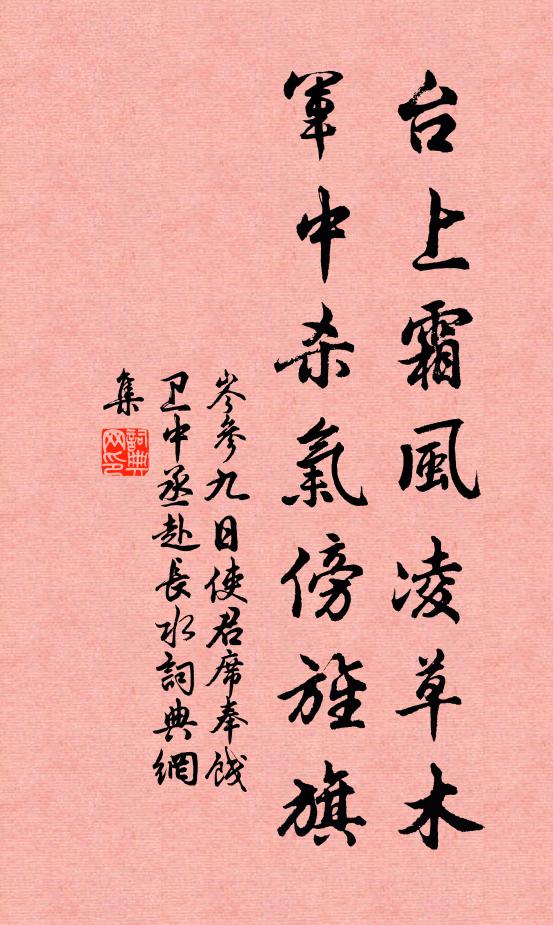 台上霜風凌草木
軍中杀氣傍旌旗
岑參九日使君席奉餞
卫中丞赴長水詞典網
集
詞典网印